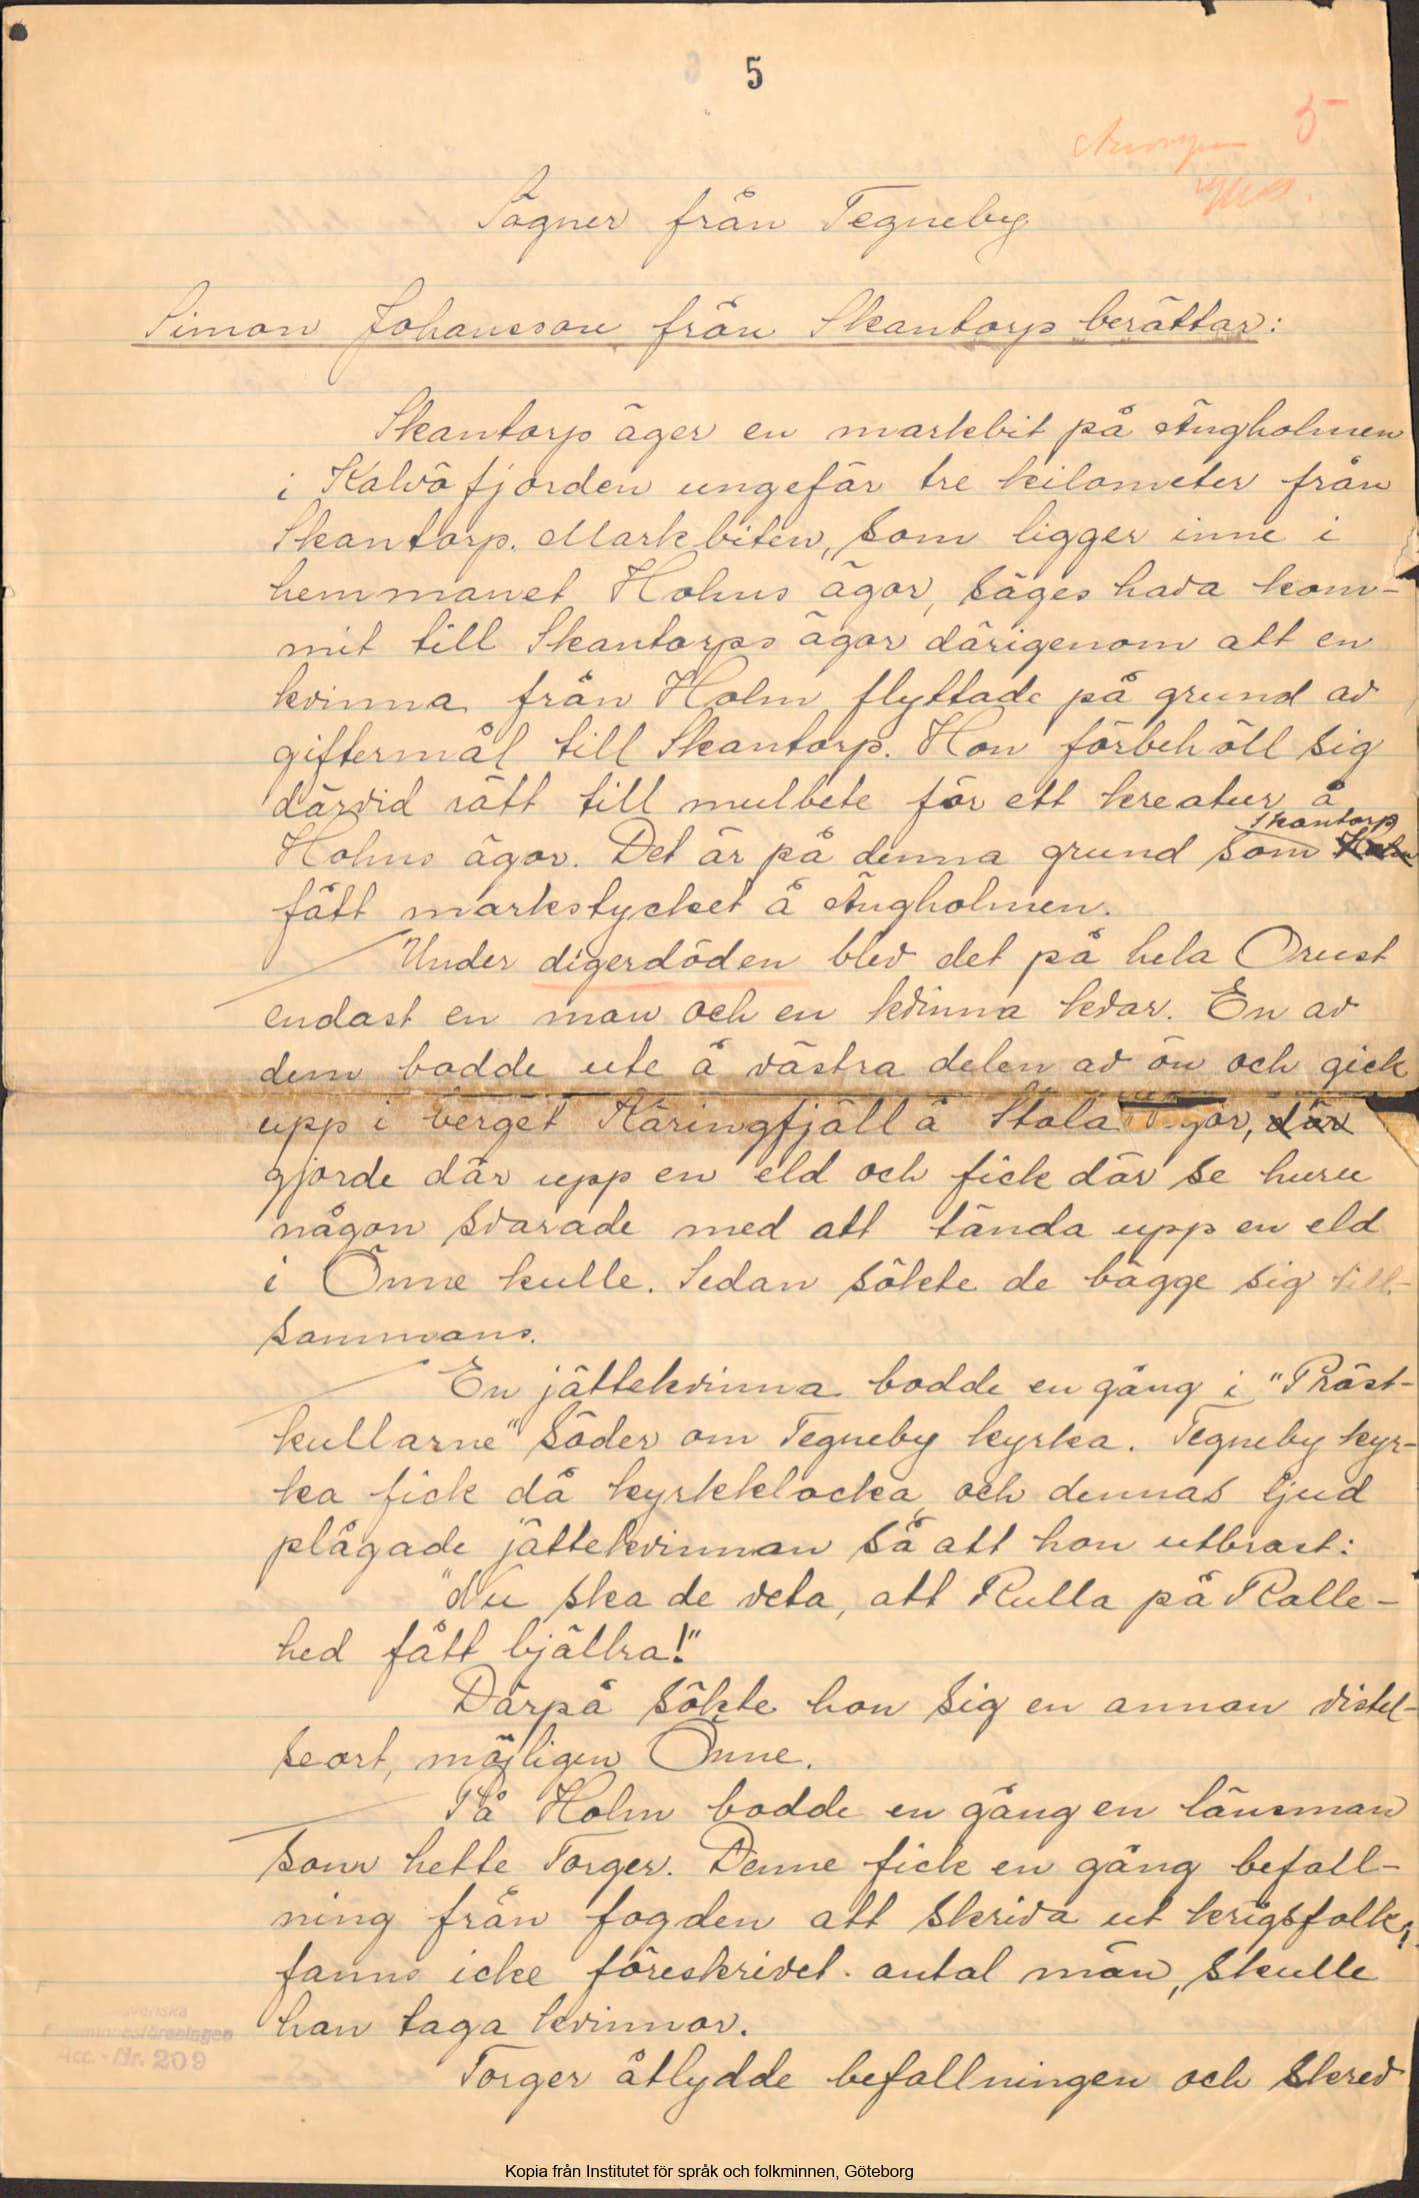 5
5
Sägner från Tegneby
Simon Johansson från Skantorp berättar:
Skantorp äger en markbit på Ängholmen
i Kalvöfjorden ungefär tre kilometer från
Skantorp. Markbiten, som ligger inne i
hemmanet Holms ägor, säges hava kom-
mit till Skantorps ägor därigenom att en
kvinna från Holm flyttade på grund av
giftermål till Skantorp. Hon förbehöll sig
därvid rätt till mulbete för ett kreatur å
Skantorp
Holms ägor. Det är på denna grund som Holm
fått markstycket å Ängholmen.
Under digerdöden blev det på hela Orust
endast en man och en kvinna kvar. En av
dem bodde ute å västra delen av ön och gick
upp i berget Käringfjäll å Stala ägor, där
gjorde där upp en eld och fick där se huru
någon svarade med att tända upp en eld
i Önne kulle. Sedan sökte de bägge sig till-
sammans.
En jättekvinna bodde en gång i "Präst-
kullarne" söder om Tegneby kyrka. Tegneby kyr-
ka fick då kyrkklocka, och dennas ljud
plågade jättekvinnan så att hon utbrast:
"Nu ska de veta, att Kulla på Ralle-
hed fått bjällra!"
Därpå sökte hon sig en annan vistel-
seort, möjligen Önne.
På Holm bodde en gång en länsman
som hette Torger. Denne fick en gång befall-
ning från fogden att skriva ut krigsfolk;
fanns icke föreskrivet antal män, skulle
han taga kvinnor.
Torger åtlydde befallningen och skrev
svenska
Acc.-Nr. 209
Kopia från Institutet för språk och folkminnen, Göteborg